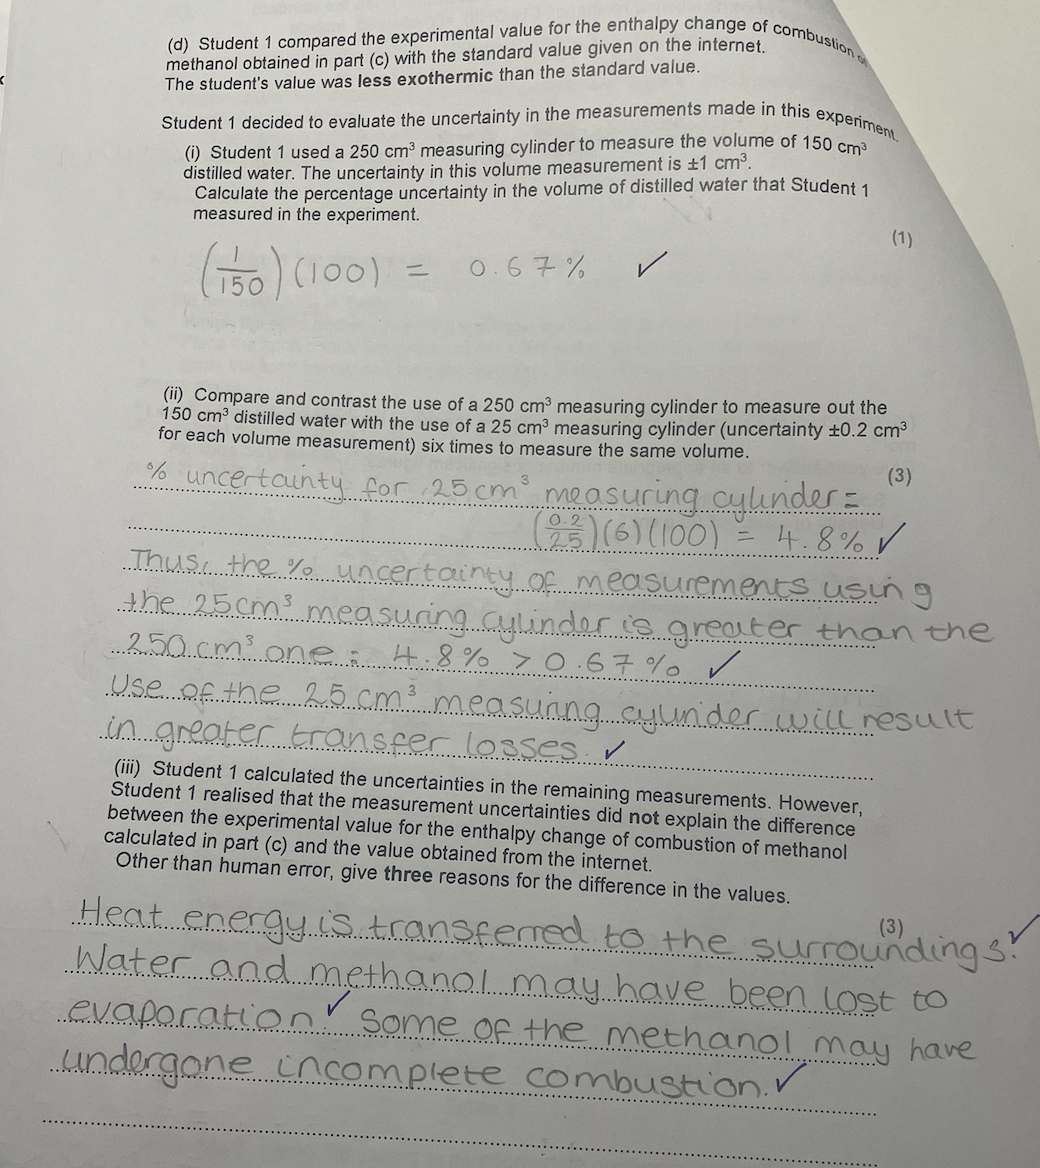 (d) Student 1 compared the experimental value for the enthalpy change of combustion of
methanol obtained in part (c) with the standard value given on the internet.
The student's value was less exothermic than the standard value.
Student 1 decided to evaluate the uncertainty in the measurements made in this experiment.
(i) Student 1 used a 250 cm³ measuring cylinder to measure the volume of 150 cm³
distilled water. The uncertainty in this volume measurement is ±1 cm³.
Calculate the percentage uncertainty in the volume of distilled water that Student 1
measured in the experiment.
(1)
(1/150)(100) = 0.67% ✓
(ii) Compare and contrast the use of a 250 cm³ measuring cylinder to measure out the
150 cm³ distilled water with the use of a 25 cm³ measuring cylinder (uncertainty ±0.2 cm³
for each volume measurement) six times to measure the same volume.
(3)
% uncertainty for 25cm³ measuring cylinder =
(0.2/25)(6)(100) = 4.8% ✓
Thus, the % uncertainty of measurements using
the 25cm³ measuring cylinder is greater than the
250cm³ one : 4.8% > 0.67% ✓
Use of the 25 cm³ measuring cylinder will result
in greater transfer losses. ✓
(iii) Student 1 calculated the uncertainties in the remaining measurements. However,
Student 1 realised that the measurement uncertainties did not explain the difference
between the experimental value for the enthalpy change of combustion of methanol
calculated in part (c) and the value obtained from the internet.
Other than human error, give three reasons for the difference in the values.
(3)
Heat energy is transferred to the surroundings. ✓
Water and methanol may have been lost to
evaporation. ✓ Some of the methanol may have
undergone incomplete combustion. ✓